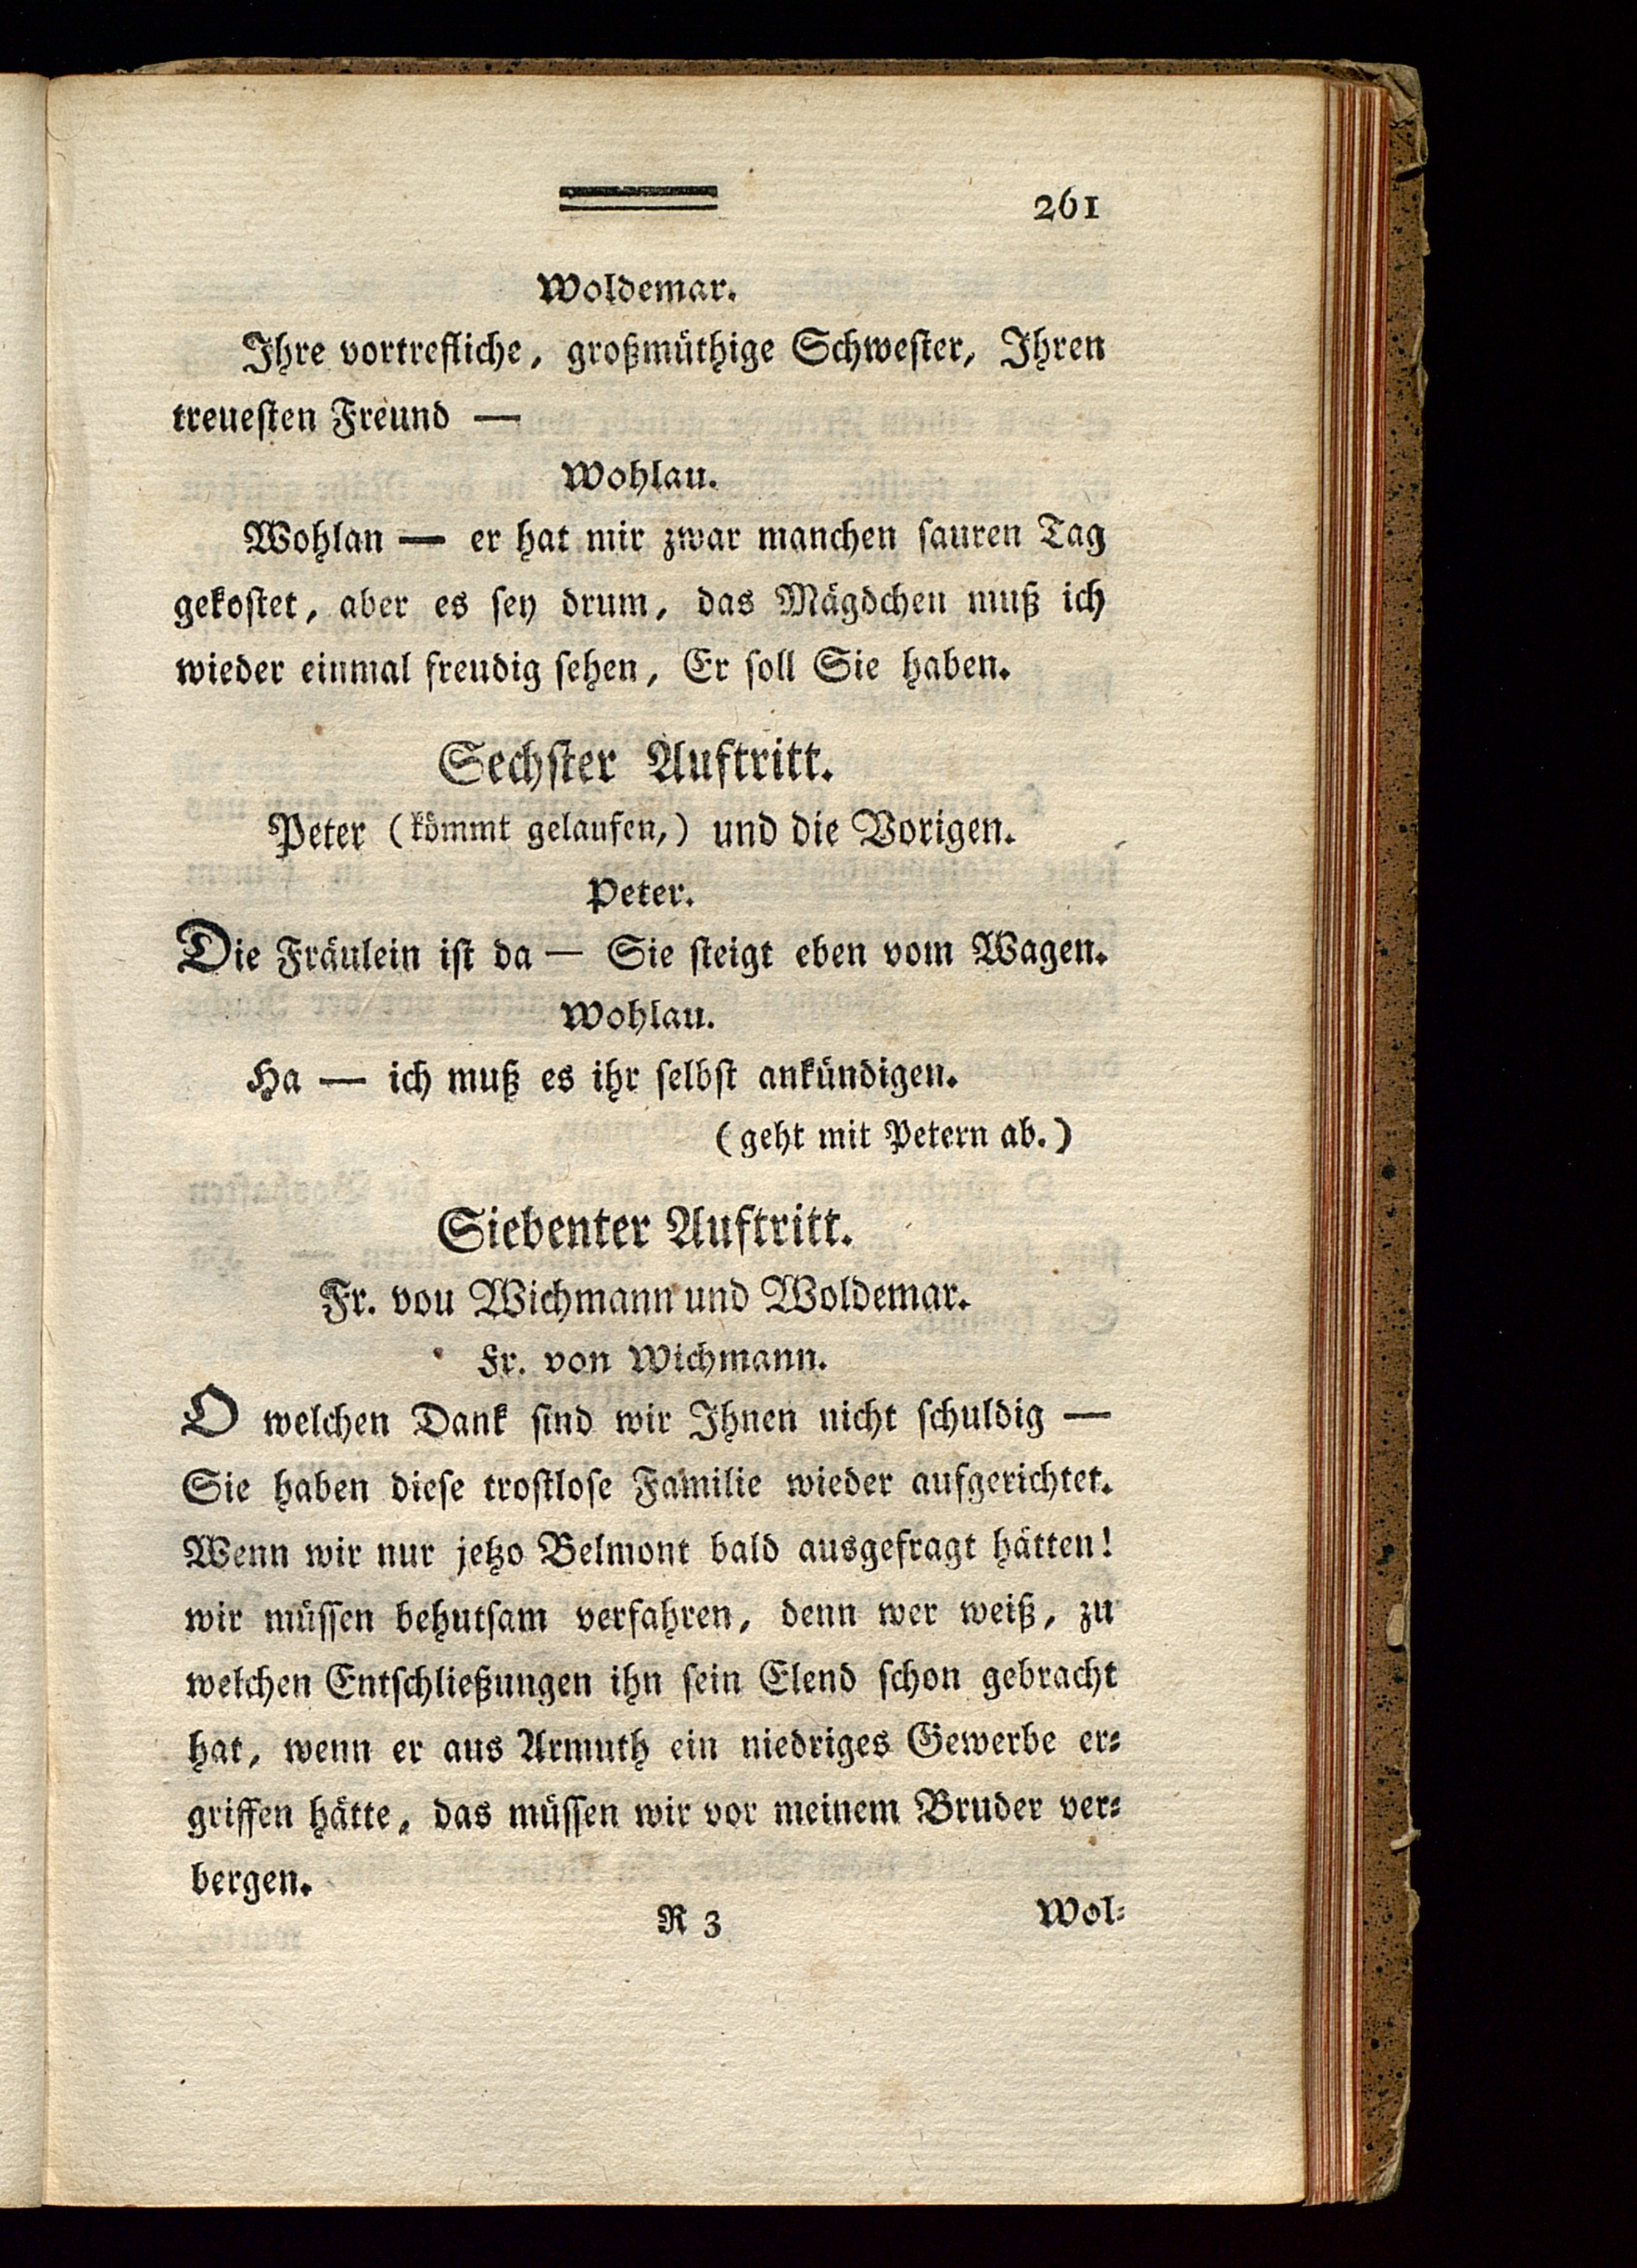 261
Woldemar.
Ihre vortrefliche, großmüthige Schweſter, Ihren
treueſten Freund —
Wohlau.
Wohlan — er hat mir zwar manchen ſauren Tag
gekoſtet, aber es ſey drum, das Mägdchen muß ich
wieder einmal freudig ſehen, Er ſoll Sie haben.
Sechſter Auftritt.
Peter (kömmt gelaufen,) und die Vorigen.
Peter.
Die Fräulein iſt da — Sie ſteigt eben vom Wagen.
Wohlau.
Ha — ich muß es ihr ſelbſt ankündigen.
(geht mit Petern ab.)
Siebenter Auftritt.
Fr. vou Wichmann und Woldemar.
Fr. von Wichmann.
O welchen Dank ſind wir Ihnen nicht ſchuldig —
Sie haben dieſe troſtloſe Familie wieder aufgerichtet.
Wenn wir nur jetzo Belmont bald ausgefragt hätten!
wir müſſen behutſam verfahren, denn wer weiß, zu
welchen Entſchließungen ihn ſein Elend ſchon gebracht
hat, wenn er aus Armuth ein niedriges Gewerbe er⸗
griffen hätte, das müſſen wir vor meinem Bruder ver⸗
bergen.
R 3 Wol⸗